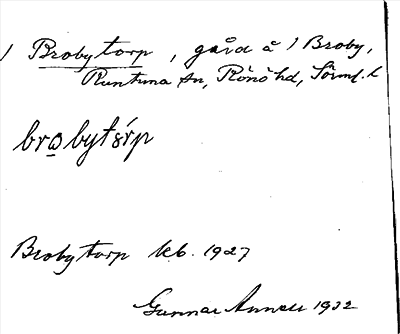 1 Brobytorp, gård å 1 Broby,
Runtuna sn, Rönö hd, Sörml. l
brobytorp
Brobytorp kb. 1927
Gunnar Annell 1932